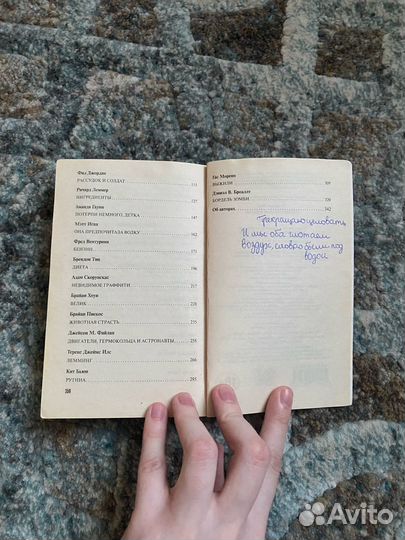 Фил Джордан
РАССУДОК И СОЛДАТ
111
Ричард Леммер
ИНГРЕДИЕНТЫ
127
Аманда Гауин
ПОТЕРПИ НЕМНОГО, ДЕТКА
147
Мэтт Иган
ОНА ПРЕДПОЧИТАЛА ВОДКУ
161
Фред Вентурини
БЕНЗИН
171
Брендон Тиц
ДИЕТА
Адам Скорупскас
НЕВИДИМОЕ ГРАФФИТИ
Брайан Хоуи
ВЕЛИК
228
Брайан Пискос
ЖИВОТНАЯ СТРАСТЬ
235
Джейсон М. Файлан
ДВИГАТЕЛИ, ТЕРМОКОЛЬЦА И АСТРОНАВТЫ
255
Теренс Джеймс Илс
ЛЕММИНГ
266
Кит Бьюи
РУГНИА
293
Гас Морено
ВЫЖИЛИ
309
Дэниэл В. Бродлет
БОРДЕЛЬ ЗОМБИ
326
Об авторах
342
Прекращаю целовать.
И мы оба глотаем
воздух, словно были под
водой
Avito